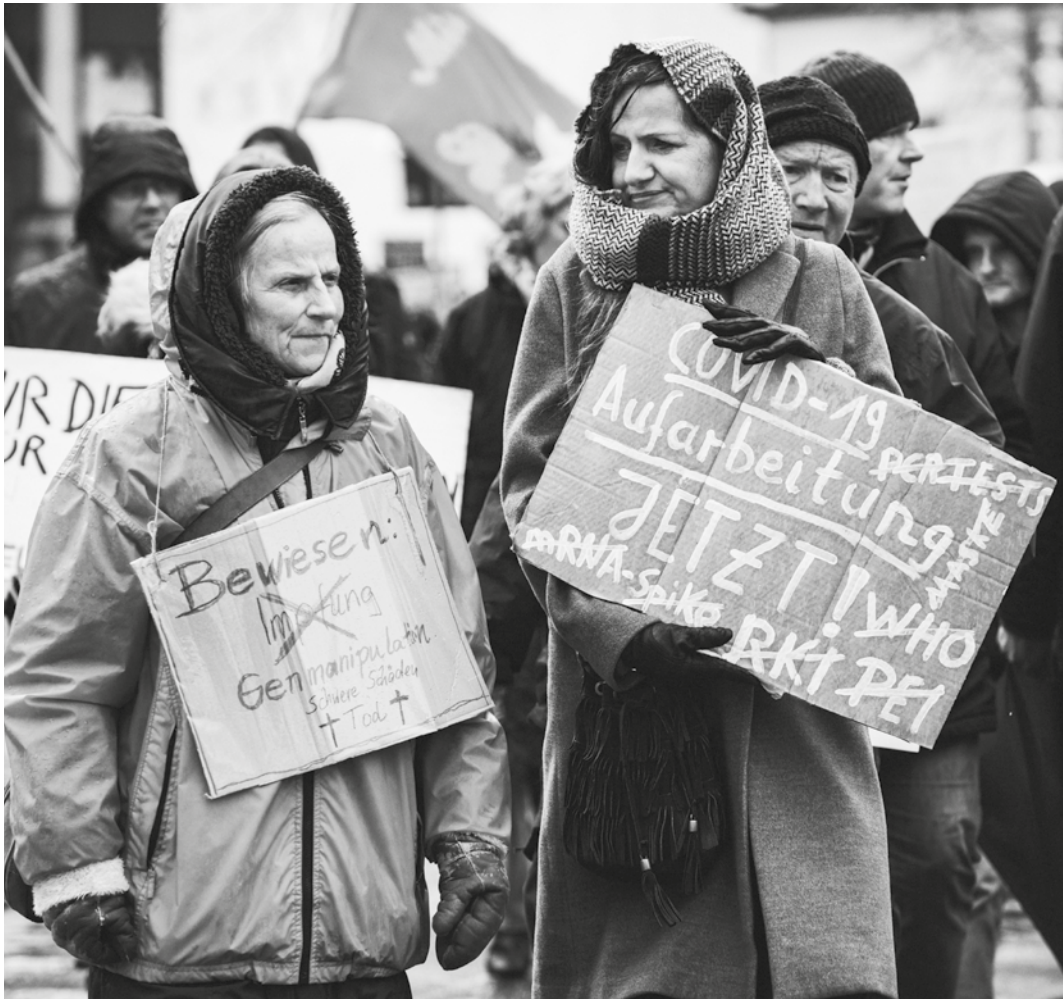 UR DIE
UR
Bewiesen:
Impfung
Genmanipulation
schwere Schäden
† Tod †
COVID-19
Aufarbeitung
PCRTESTS
JETZT!
MASKE
mRNA-Spike
WHO
RKI PEI